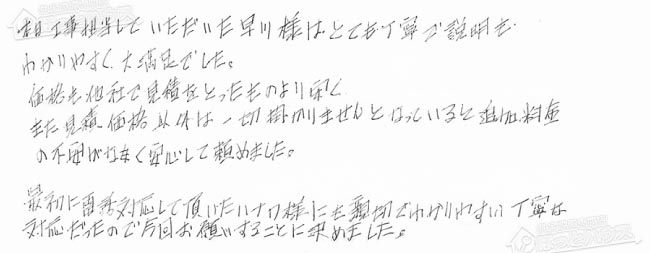 工事担当していただいた早川様は、とても丁寧で説明も
わかりやすく、大満足でした。
価格も他社で見積をとったものより安く、
また見積価格以外は一切掛かりませんとなっていると追加料金
の不安がなく安心して頼めました。
最初に電話対応して頂いた様にも親切でわかりやすい丁寧な
対応だったので今回お願いすることに決めました。